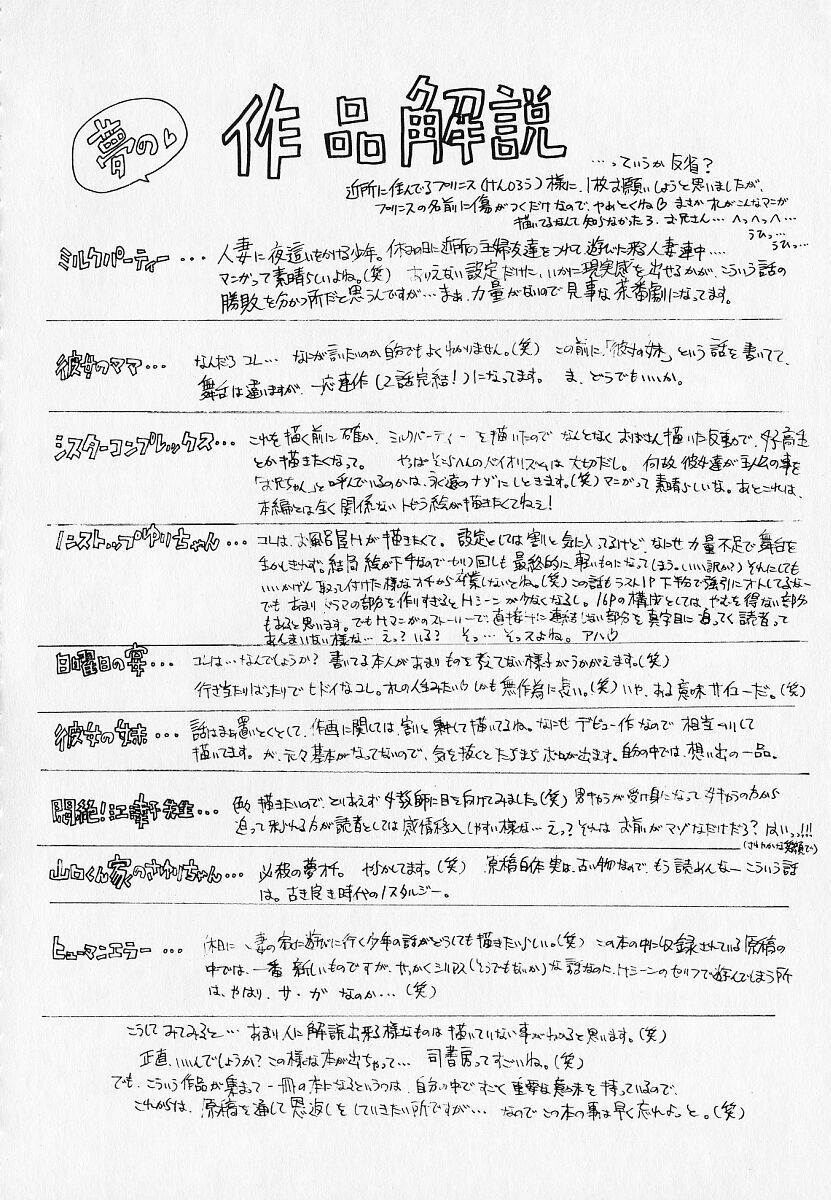 夢の
作品解説
…っていうか反省?
近所に住んでるプリンス(けんじろう)様に、1枚お願いしようと思いましたが、
プリンスの名前に傷がつくだけなので、やめとくね まさかオレがこんなマンガ
描いてるなんて知らなかったろ、お兄さん…へっへっへ…
うひっ…
うひっ…
ミルクパーティー … 人妻に夜這いをかける少年。休みの日に近所の主婦友達をつれて遊びに来る人妻連中…
マンガって素晴らしいよね。(笑) ありえない設定だけに、いかに現実感を出せるかが、こういう話の
勝敗を分かつ所だと思うんですが…まぁ、力量がないので見事な茶番劇になってます。
彼女のママ… なんだろコレ… なにが言いたいのか自分でもよくわかりません。(笑) この前に、「彼女の妹」という話を書いてて、
舞台は違いますが、一応連作(2話完結!)になってます。 ま、どうでもいいか。
シスターコンプレックス… これを描く前に確か、ミルクパーティーを描いたので なんとなくおばさん描いた反動で、女子高生
とか描きたくなって。 やっぱそこらへんのバイオリズムは大切だし。 何故彼女達が主人公の事を
「お兄ちゃん」と呼んでいるのかは、永遠のナゾにしときます。(笑)マンガって素晴らしいな。あとこれは、
本編とは全く関係ないトビラ絵が描きたくてねェ!
ノンストップゆりちゃん… コレは、お風呂屋Hが描きたくて。 設定としては割と気に入ってるけど、なにせ力量不足で舞台を
生かしきれず。結局絵が下手なのでセリフ回しも最終的に軽いものになってしまう。(いい訳か?)それにしても
いいかげん取って付けた様なオチから卒業しないとね。(笑)この話もラスト1P 下半分で強引にオトしてるなー
でもあまりドラマの部分を作りすぎるとHシーンが少なくなるし。16Pの構成としては、やむを得ない部分
もあると思います。でもHマンガのストーリーで、直接Hに連結しない部分を真字目に追ってく読者って
あんまいない様な… えっ?いる? そっ…そっスよね。アハ
日曜日の宴… コレは…なんでしょうか?書いてる本人があまりものを考えてない様子がうかがえます。(笑)
行き当たりばったりでヒドイなコレ。オレの人生みたい しかも無作為に長い。(笑)いや、ある意味サイコーだ。(笑)
彼女の妹… 話はまぁ置いとくとして、作画に関しては割と無理して描いてるね。なにせデビュー作なので相当
描いてます。が、元々基本がなってないので、気を抜くとたちまちボロが出ます。自分の中では、想い出の一品。
悶絶!江幸子先生… 色々描きたいので、とりあえず女教師に目を向けてみました。(笑)男キャラが受け身になって女キャラの方から
迫って来られる方が読者としては感情移入しやすい様な…えっ?それは お前がマゾなだけだろ?はいっっ!!!
(さわやかな笑顔で)
山口くん家のさゆりちゃん… 必殺の夢オチ。 やらかしてます。(笑) 原稿自体 実は、古い物なので、もう読めんなーこういう話
は。古き良き時代のノスタルジー。
ヒューマンエラー… 人妻の家に遊びに行く少年の話がどうしても描きたいらしい。(笑) この本の中に収録されている原稿の
中では、一番新しいものですが、せっかくシリアス(そうでもないか)な話なのに、Hシーンのセリフで遊んでしまう所
は、やはり、サ・ガなのか…(笑)
こうしてみてみると… あまり人に解説出来る様なものは描いていない事がわかると思います。(笑)
正直、いいんでしょうか?この様な本が出ちゃって… 司書房ってすごいね。(笑)
でも、こういう作品が集まって一冊の本になるというのは、自分の中ですごく重要な意味を持っているので、
これからは、原稿を通して恩返しをしていきたい所ですが… なのでこの本の事は早く忘れよっと。(笑)